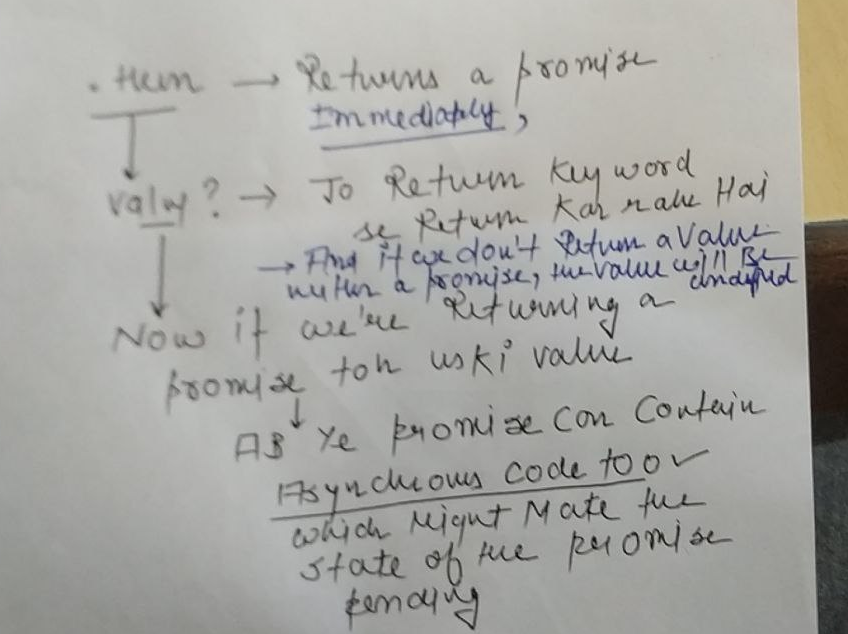 .then → Returns a promise
Immediately,
value? → Jo Return Keyword
se Return Kar rahe Hai
→ And if we don't Return a Value
neither a promise, the value will Be undefined
Now if we're Returning a
promise toh uski value
AB Ye promise Can Contain
Asynchronous Code too ✓
which Might Make the
state of the promise
pending